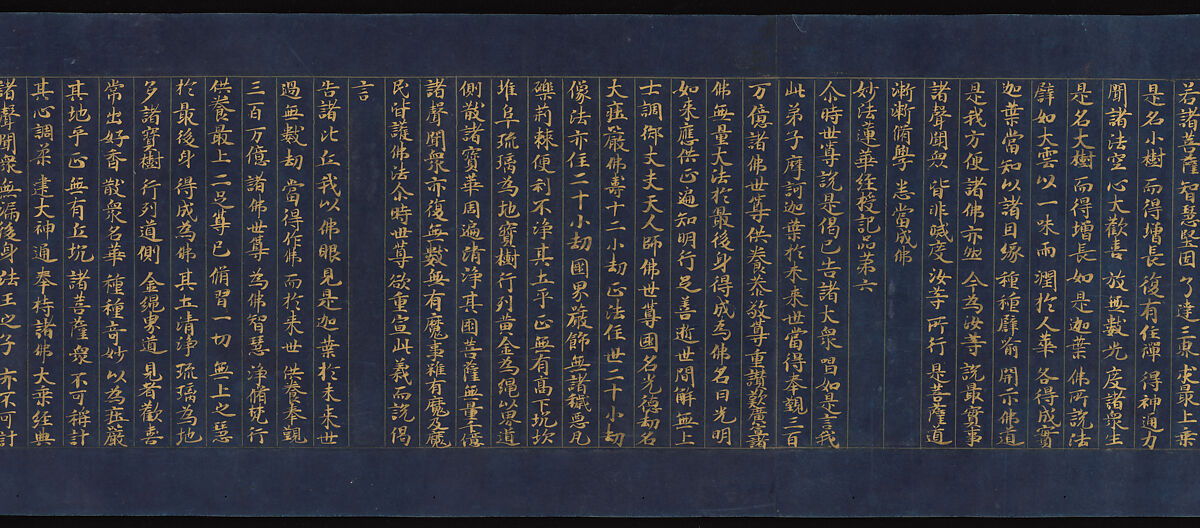 若諸菩薩 智慧堅固 了達三界 求最上乘
是名小樹 而得增長 復有住禪 得神通力
聞諸法空 心大歡喜 放無數光 度諸衆生
是名大樹 而得增長 如是迦葉 佛所說法
譬如大雲 以一味雨 潤於人華 各得成實
迦葉當知 以諸因緣 種種譬喻 開示佛道
是我方便 諸佛亦然 今為汝等 說最實事
諸聲聞衆 皆非滅度 汝等所行 是菩薩道
漸漸脩學 悉當成佛
妙法蓮華經授記品第六
尒時世尊說是偈已告諸大衆唱如是言我
此弟子摩訶迦葉於未來世當得奉覲三百
万億諸佛世尊供養恭敬尊重讚歎廣宣諸
佛無量大法於最後身得成為佛名曰光明
如來應供正遍知明行足善逝世間解無上
士調御丈夫天人師佛世尊國名光德劫名
大莊嚴佛壽十二小劫正法住世二十小劫
像法亦住二十小劫國界嚴飾無諸穢惡瓦
礫荊棘便利不淨其土平正無有高下坑坎
堆阜琉璃為地寶樹行列黃金為繩以界道
側散諸寶華周遍清淨其國菩薩無量千億
諸聲聞衆亦復無數無有魔事雖有魔及魔
民皆護佛法尒時世尊欲重宣此義而說偈
言
告諸比丘 我以佛眼 見是迦葉 於未來世
過無數劫 當得作佛 而於來世 供養奉覲
三百万億 諸佛世尊 為佛智慧 淨脩梵行
供養最上 二足尊已 脩習一切 無上之慧
於最後身 得成為佛 其土清淨 琉璃為地
多諸寶樹 行列道側 金繩界道 見者歡喜
常出好香 散衆名華 種種奇妙 以為莊嚴
其地平正 無有丘坑 諸菩薩衆 不可稱計
其心調柔 逮大神通 奉持諸佛 大乘經典
諸聲聞衆 無漏後身 法王之子 亦不可計